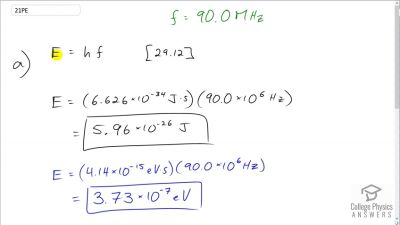 21PE
f = 90.0 MHz
a) E = hf [29.12]
E = (6.626×10⁻³⁴ J·s)(90.0×10⁶ Hz)
= 5.96×10⁻²⁶ J
E = (4.14×10⁻¹⁵ eV s)(90.0×10⁶ Hz)
= 3.73×10⁻⁷ eV
College Physics
ANSWERS